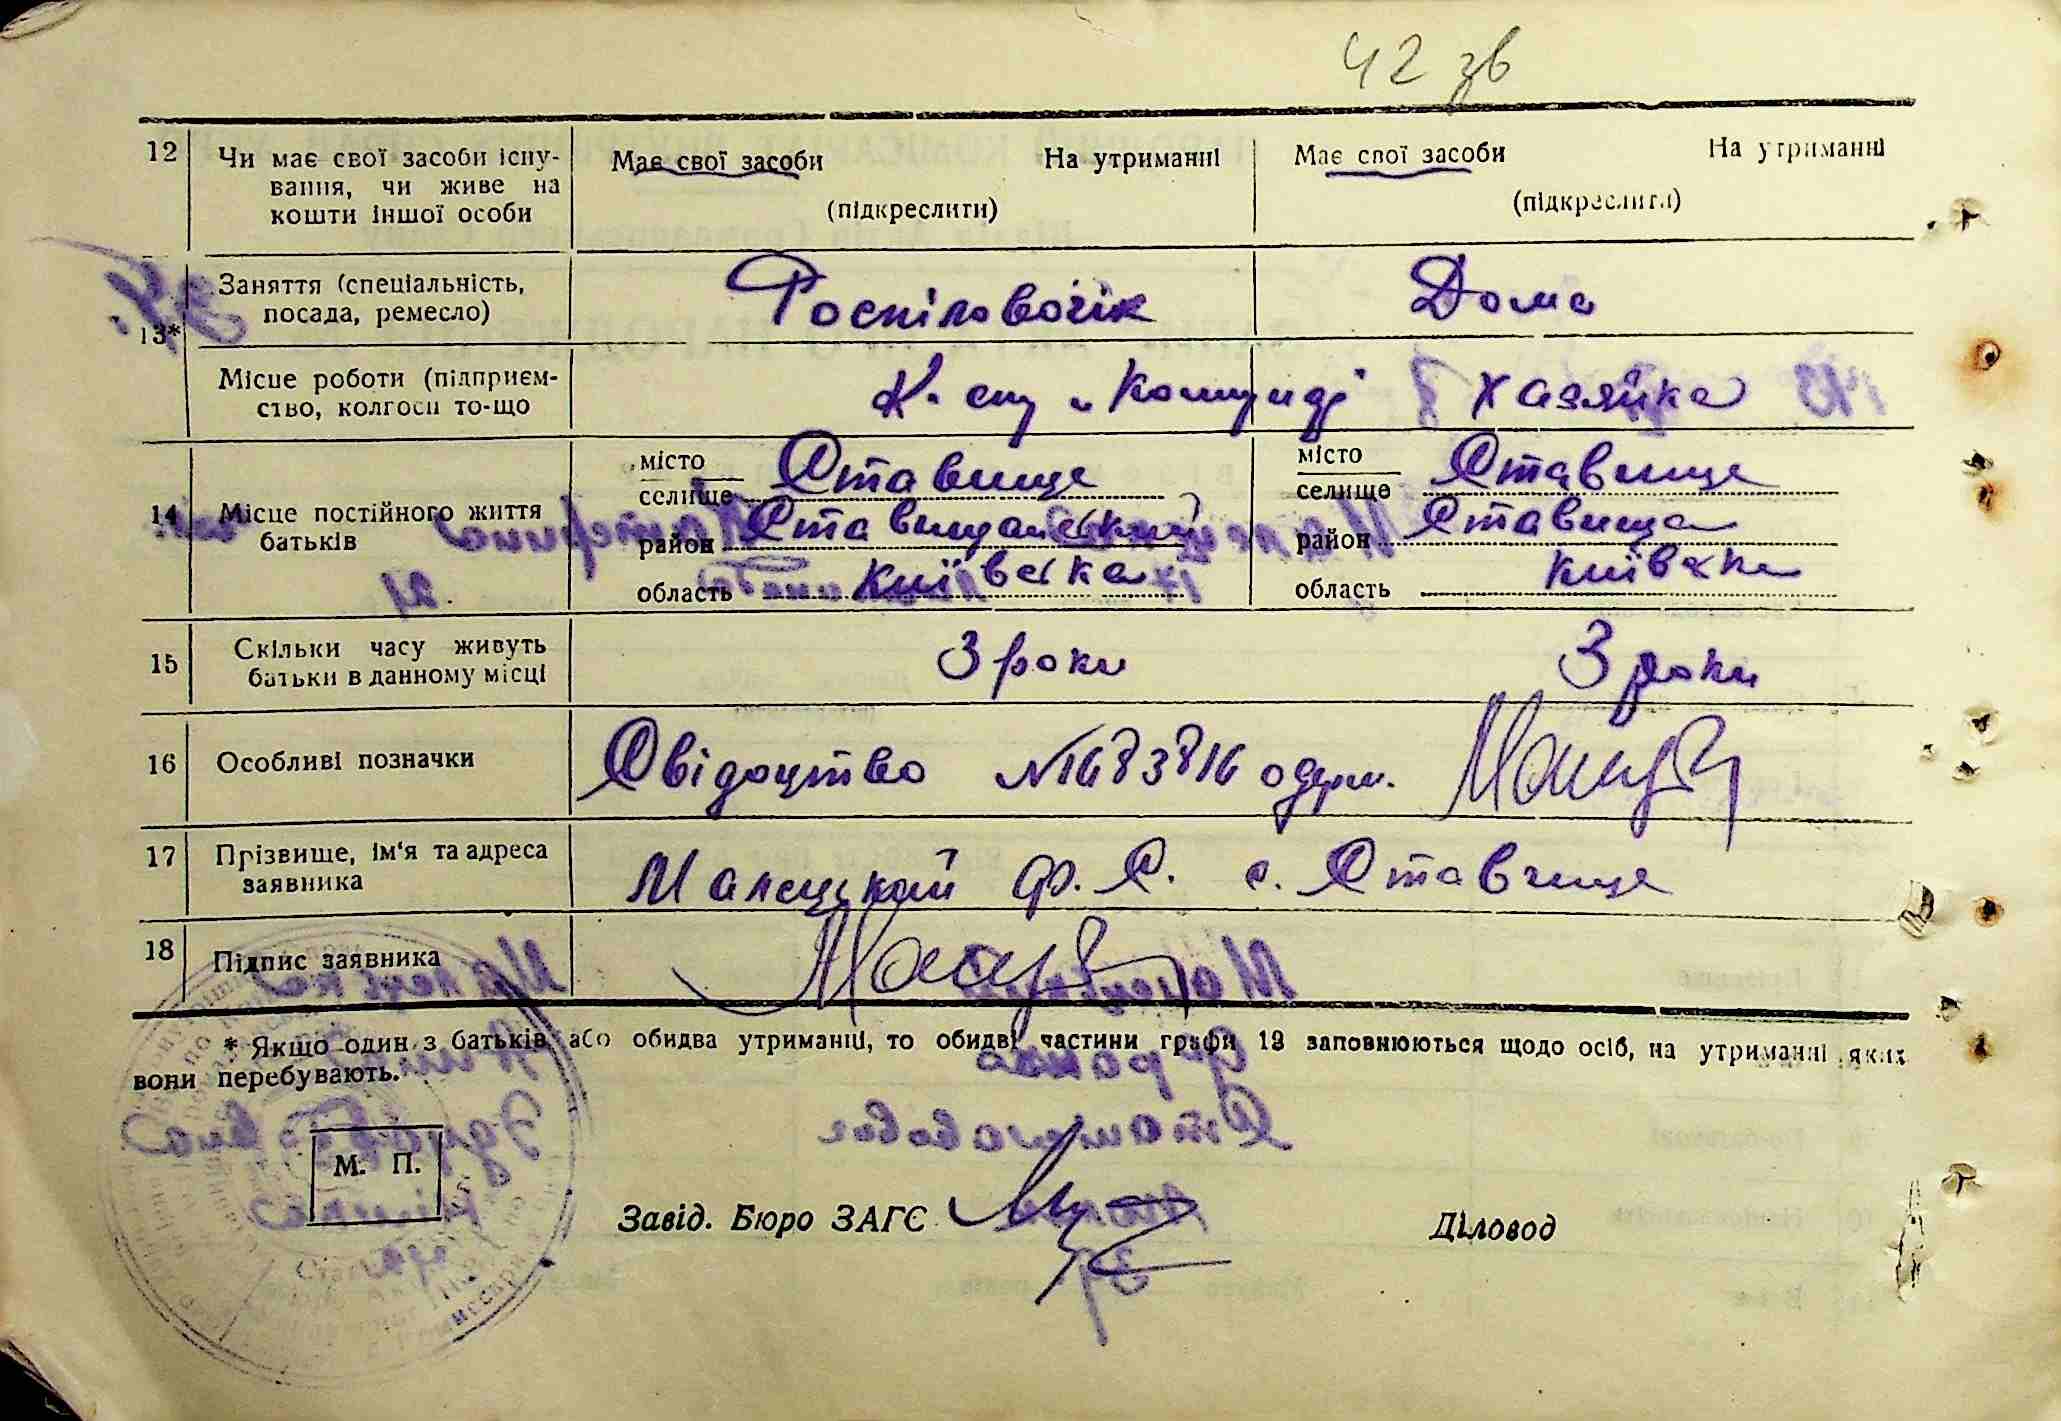 42 зв
12 Чи має свої засоби існу- Має свої засоби На утриманні Має свої засоби На утриманні
вання, чи живе на
кошти іншої особи (підкреслити) (підкреслити)
13* Заняття (спеціальність, Роспіловочік Дома
посада, ремесло)
Місце роботи (підприєм- Хазяйка
ство, колгосп то-що
14 Місце постійного життя місто Ставище місто Ставище
батьків селище селище
район Ставищанський район Ставища
область Київська область Київська
15 Скільки часу живуть 3 роки 3 роки
батьки в данному місці
16 Особливі позначки Свідоцтво одерж.
17 Прізвище, ім'я та адреса Малецький Ф. С. с. Ставище
заявника
18 Підпис заявника
* Якщо один з батьків або обидва утриманці, то обидві частини графи 13 заповнюються щодо осіб, на утриманні яких
вони перебувають.
М. П.
Завід. Бюро ЗАГС Діловод